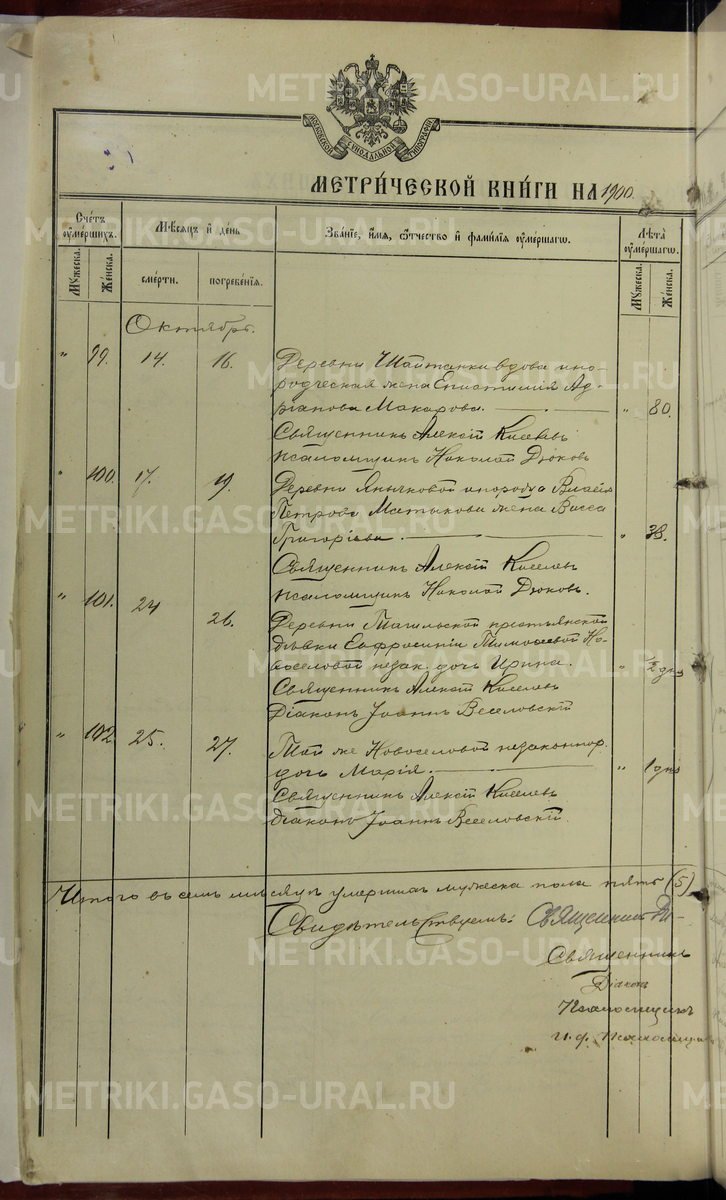 METRIKI.GASO-URAL.RU
МОСКОВСКОЙ СѴНОДАЛЬНОЙ ТИПОГРАФІИ
МЕТРИ́ЧЕСКОЙ КНИ́ГИ НА 1900.
Сче́тъ ᲂу҆ме́ршихъ.
Мꙋ́жеска.
Же́нска.
Мѣ́сѧцъ и҆ де́нь
сме́рти.
погребе́нїѧ.
Зва́нїе, и҆́мѧ, ѻ҆́тчество и҆ фами́лїѧ ᲂу҆ме́ршагѡ.
Лѣ́та ᲂу҆ме́ршагѡ.
Мꙋ́жеска.
Же́нска.
Октябрь.
" 99. 14. 16. Деревни Шайтанки вдова ино-
родческая жена Епистимія Ад-
ріанова Макарова. " 80.
Священникъ Алексій Киселевъ
Псаломщикъ Николай Дюковъ
" 100. 17. 19. Деревни Янычковой инородца Власія
Петрова Матыкова жена Васса
Григоріева. " 38.
Священникъ Алексій Киселевъ
Псаломщикъ Николай Дюковъ.
" 101. 24 26. Деревни Тагильской крестьянской
дѣвки Евфросиніи Тимофеевой Но-
воселовой незак. дочь Ирина. " 1/2 дня
Священникъ Алексій Киселевъ
Діаконъ Іоаннъ Веселовскій
" 102. 25. 27. Той же Новоселовой незаконнор.
дочь Марія. " 1 дня
Священникъ Алексій Киселевъ
Діаконъ Іоаннъ Веселовскій.
Итого въ семъ мѣсяцѣ умершихъ мужеска пола пять (5)
Свидѣтельствуемъ: Священникъ
Священникъ
Діаконъ
Псаломщикъ
и. д. Псаломщика